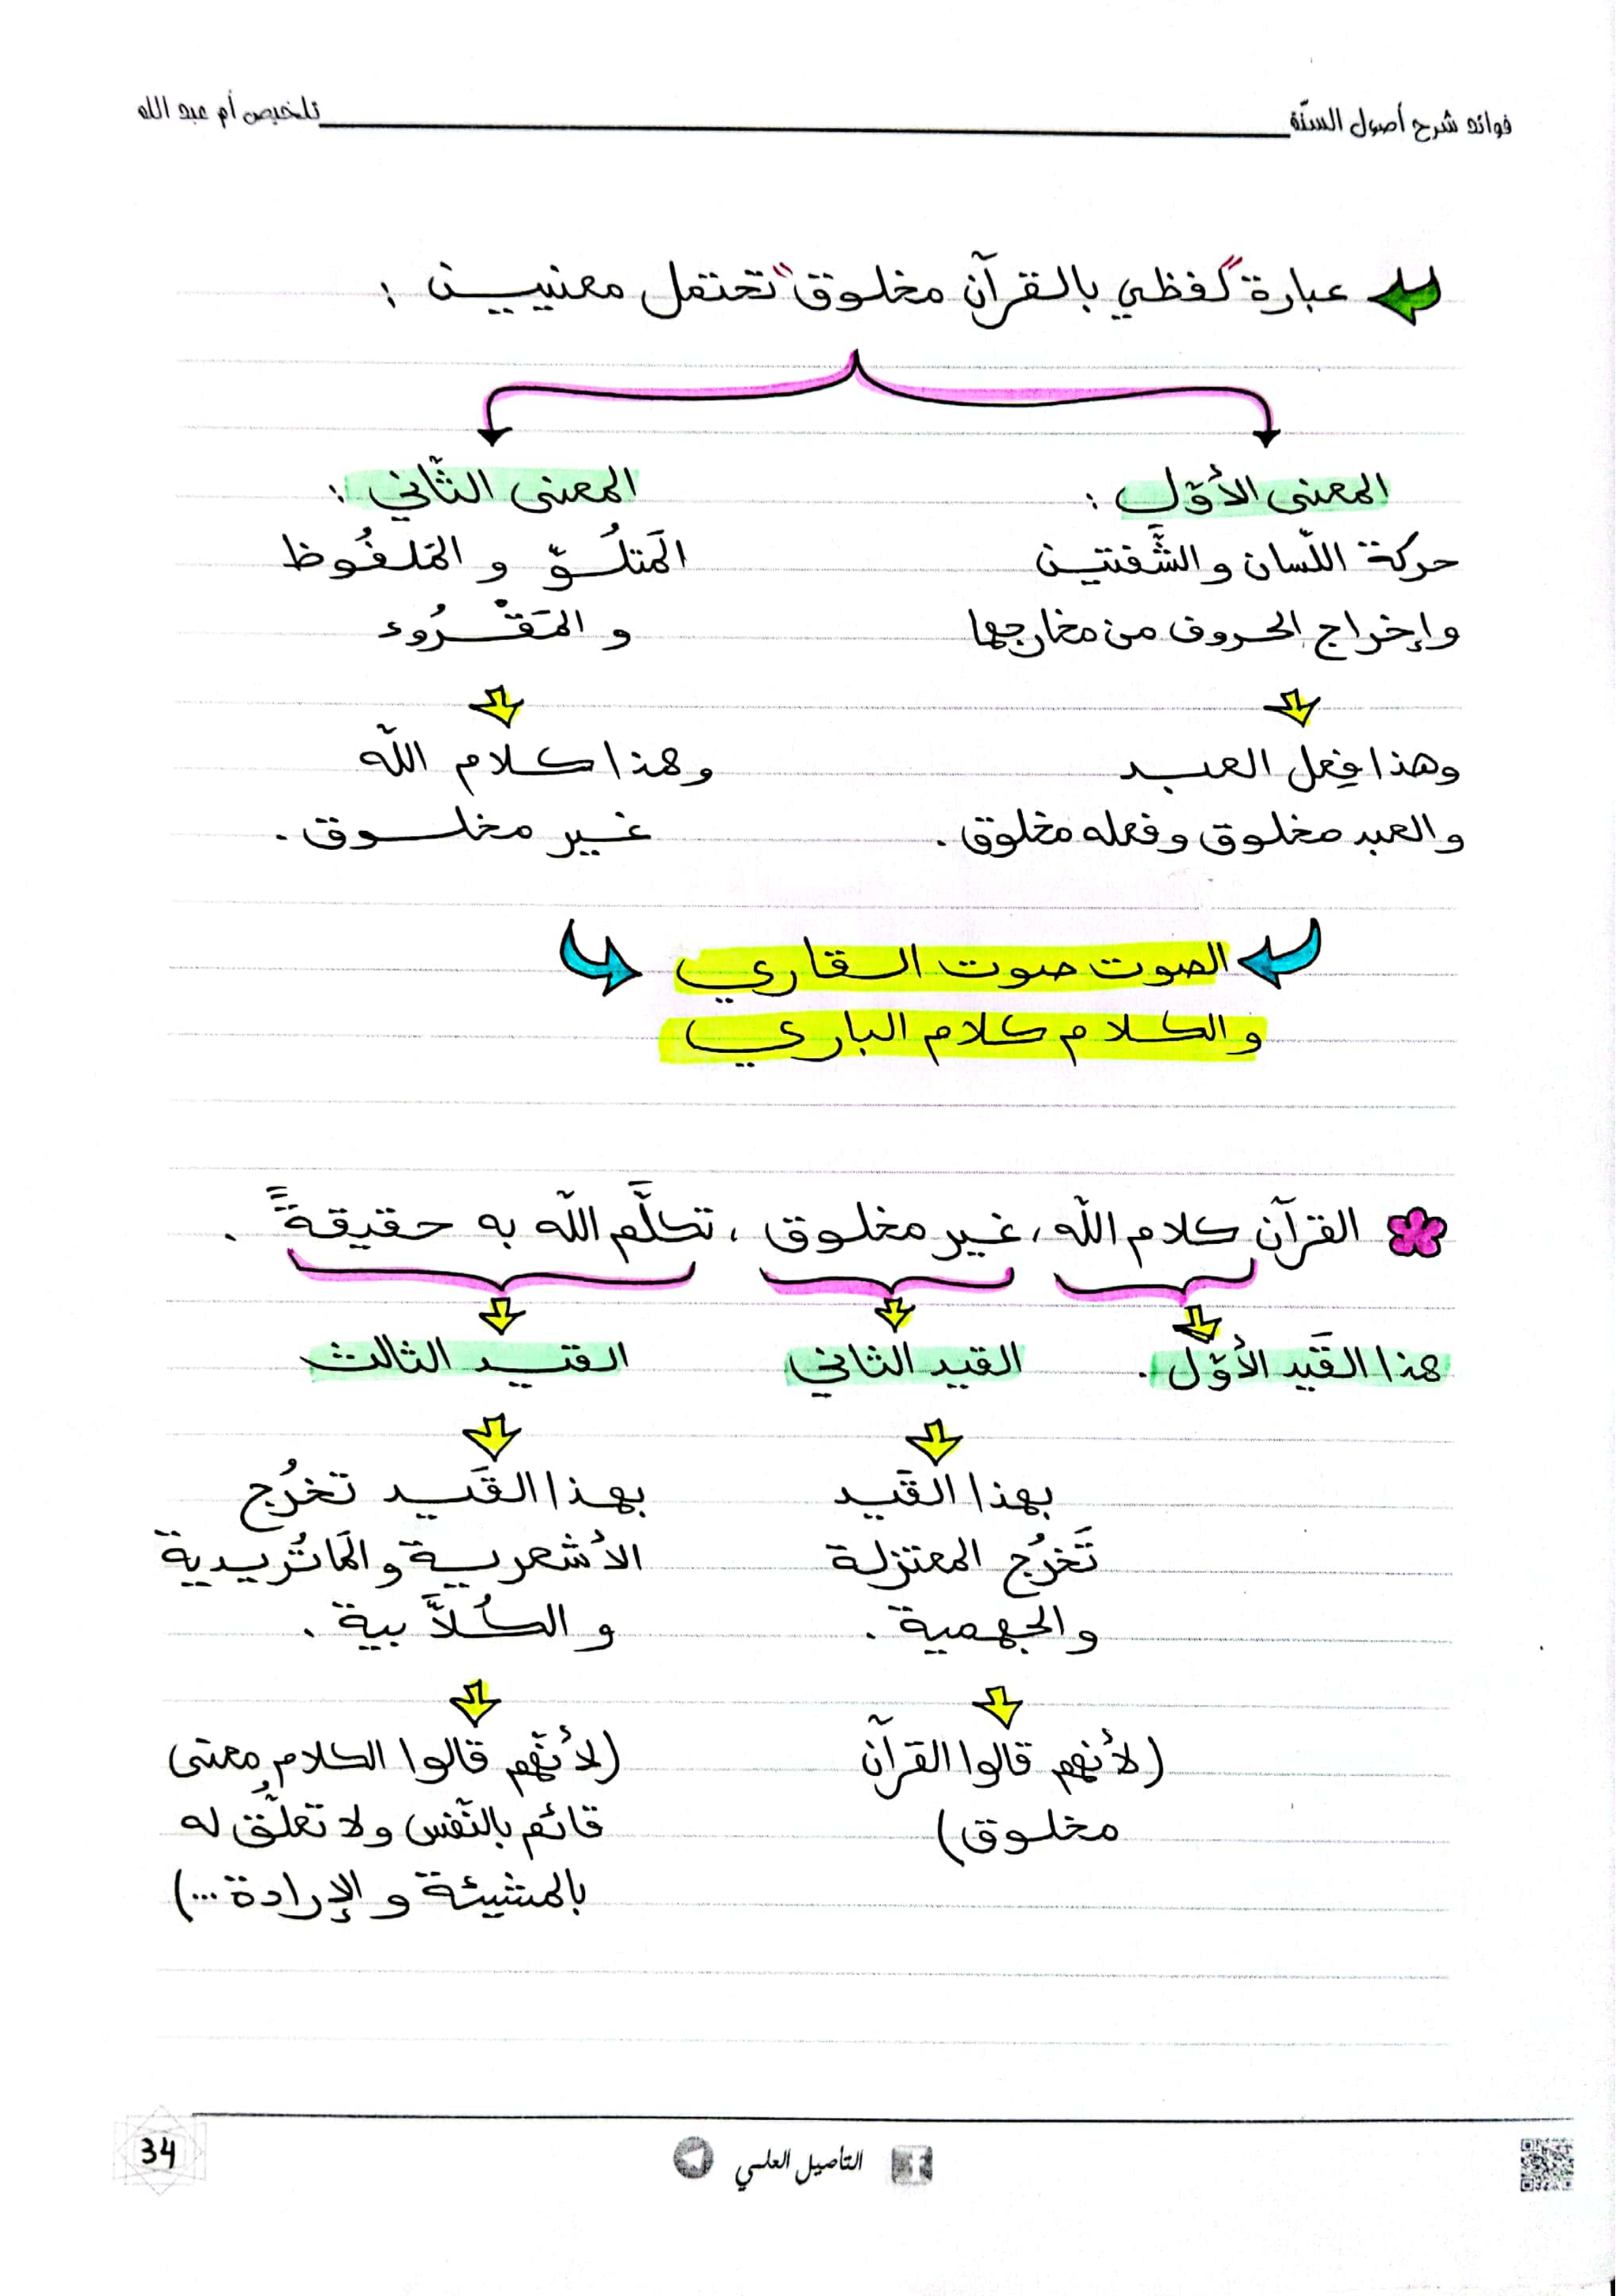 فوائد شرح أصول السنّة
تلخيص أم عبد الله
عبارة "لفظي بالقرآن مخلوق" تحتمل معنيين :
المعنى الأوّل :
حركة اللّسان والشَّفتين
وإخراج الحروف من مخارجها
وهذا فِعل العبد
والعبد مخلوق وفعله مخلوق .
المعنى الثّاني :
المَتلُوّ و المَلفُوظ
و المَقْرُوء
وهذا كلام اللّه
غير مخلوق .
الصوت صوت القاري
والكلام كلام الباري
القرآن كلام اللّه، غير مخلوق، تكلَّم اللّه به حقيقةً .
هذا القَيد الأوّل .
القيد الثاني
بهذا القَيد
تَخرُج المعتزلة
والجهمية .
(لأنهم قالوا القرآن
مخلوق)
القيد الثالث
بهذا القَيد تخرُج
الأشعرية والمَاتُريدية
والكُلاَّبية .
(لأنّهم قالوا الكلام معنى
قائم بالنّفس ولا تعلُّق له
بالمشيئة و الإرادة ...)
التأصيل العلمي
34